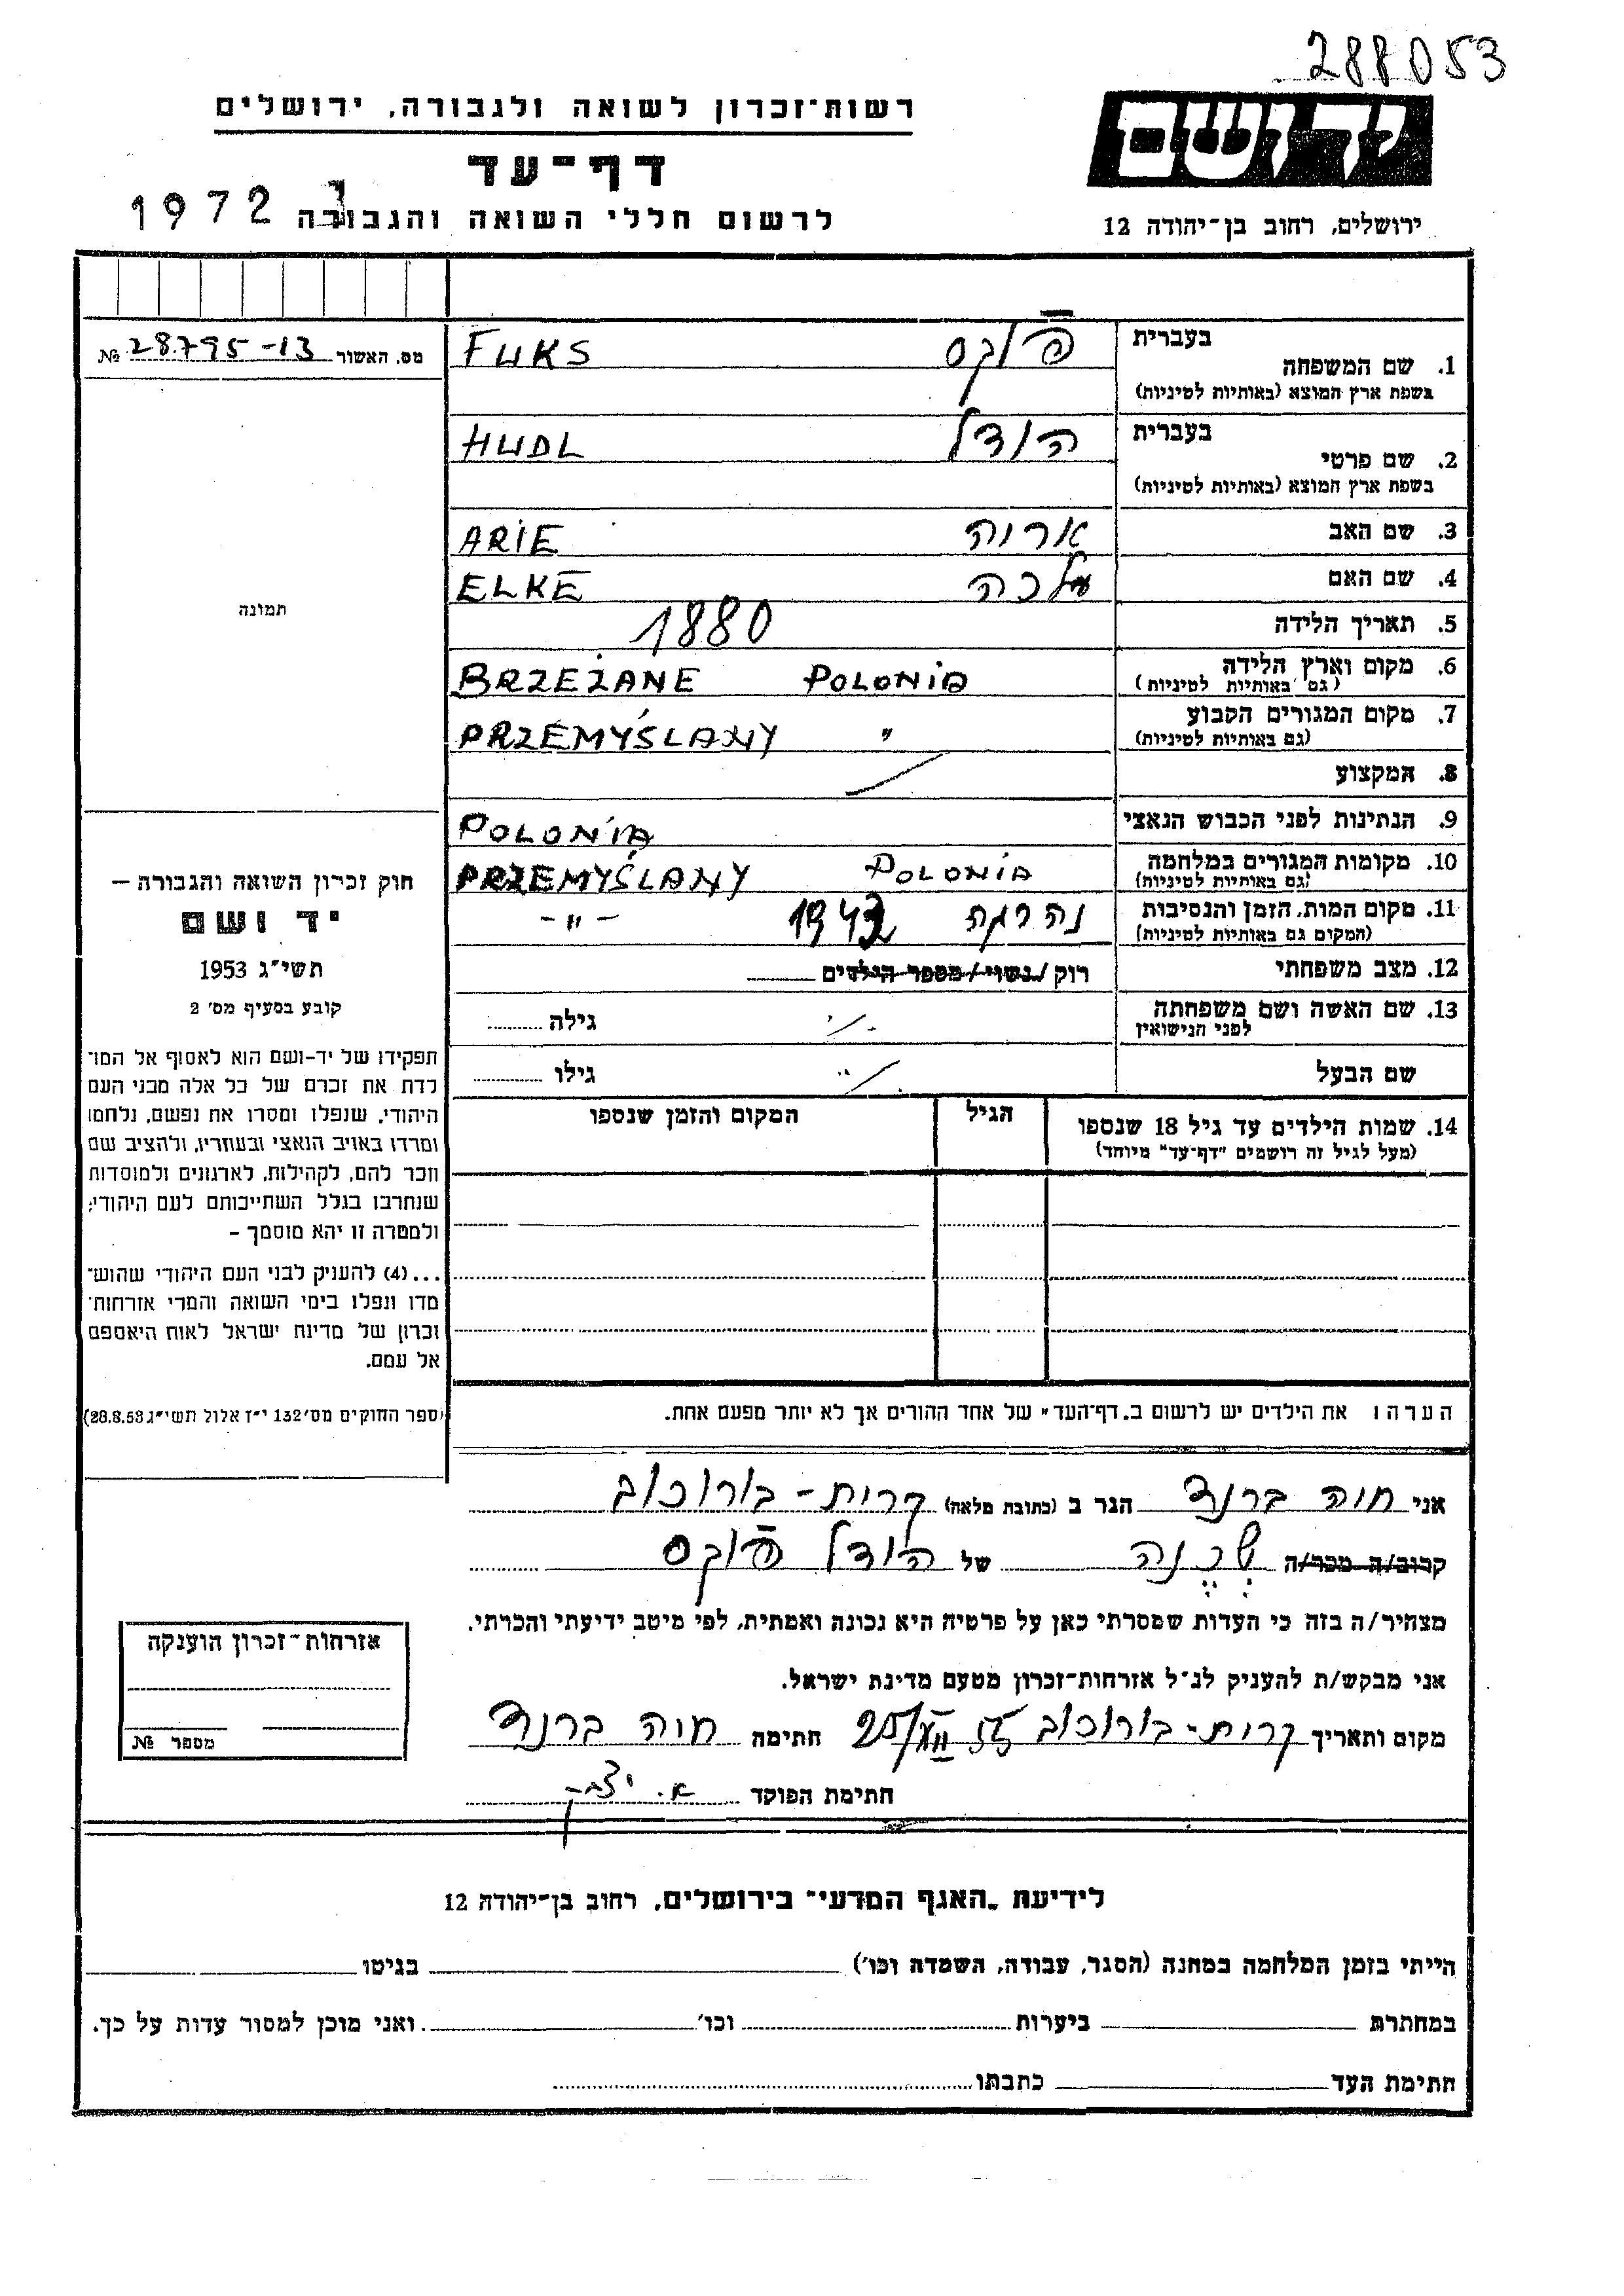 288053
ידושם
ירושלים, רחוב בן־יהודה 12
רשות־זכרון לשואה ולגבורה, ירושלים
דף־עד
לרשום חללי השואה והגבורה
1972
בעברית
1. שם המשפחה
בשפת ארץ המוצא (באותיות לטיניות)
פוקס FUKS
בעברית
2. שם פרטי
בשפת ארץ המוצא (באותיות לטיניות)
הודל HUDL
3. שם האב אריה ARIE
4. שם האם עלכה ELKE
5. תאריך הלידה 1880
6. מקום וארץ הלידה BRZEŻANE POLONIA
(גם באותיות לטיניות)
7. מקום המגורים הקבוע PRZEMYŚLANY "
(גם באותיות לטיניות)
8. המקצוע
9. הנתינות לפני הכבוש הנאצי POLONIA
10. מקומות המגורים במלחמה PRZEMYŚLANY POLONIA
(גם באותיות לטיניות)
11. מקום המות, הזמן והנסיבות נהרגה -"-
(המקום גם באותיות לטיניות)
12. מצב משפחתי רוק/נשוי/מספר הילדים
13. שם האשה ושם משפחתה גילה
לפני הנישואין
שם הבעל גילו
14. שמות הילדים עד גיל 18 שנספו הגיל המקום והזמן שנספו
(מעל לגיל זה רושמים "דף־עד" מיוחד)
הערה: את הילדים יש לרשום ב„דף־העד" של אחד ההורים אך לא יותר מפעם אחת.
אני חוה ברנד הגר ב (כתובת מלאה) קרית-בורוכוב
קרוב/ה מכר/ה שכנה של הודל פוקס
מצהיר/ה בזה כי העדות שמסרתי כאן על פרטיה היא נכונה ואמתית, לפי מיטב ידיעתי והכרתי.
אני מבקש/ת להעניק לנ״ל אזרחות־זכרון מטעם מדינת ישראל.
מקום ותאריך קרית-בורוכוב 25/XII 55 חתימה חוה ברנד
חתימת הפוקד
מס. האשור 28795-13 №
תמונה
חוק זכרון השואה והגבורה –
יד ושם
תשי״ג 1953
קובע בסעיף מס׳ 2
תפקידו של יד-ושם הוא לאסוף אל המו־
לדת את זכרם של כל אלה מבני העם
היהודי, שנפלו ומסרו את נפשם, נלחמו
ומרדו באויב הנאצי ובעוזריו, ולהציב שם
וזכר להם, לקהילות, לארגונים ולמוסדות
שנחרבו בגלל השתייכותם לעם היהודי;
ולמטרה זו יהא מוסמך –
...(4) להעניק לבני העם היהודי שהוש־
מדו ונפלו בימי השואה והמרי אזרחות־
זכרון של מדינת ישראל לאות היאספם
אל עמם.
(ספר החוקים מס׳ 132 י״ז אלול תשי״ג 28.8.53)
אזרחות־זכרון הוענקה
מספר №
לידיעת „האגף המדעי" בירושלים, רחוב בן־יהודה 12
הייתי בזמן המלחמה במחנה (הסגר, עבודה, השמדה וכו׳) בגיטו
במחתרת ביערות וכו׳ ואני מוכן למסור עדות על כך.
חתימת העד כתבתו